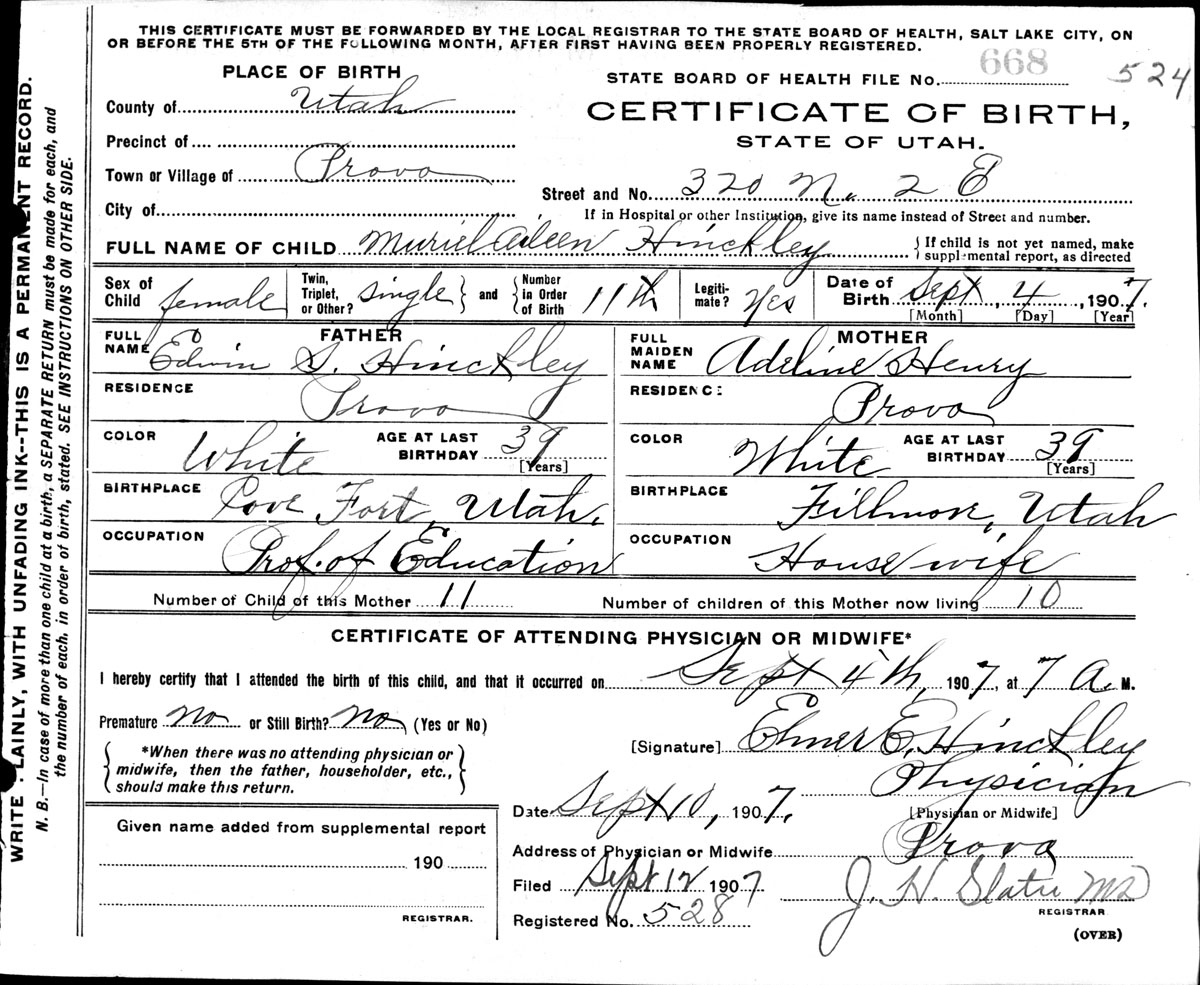 THIS CERTIFICATE MUST BE FORWARDED BY THE LOCAL REGISTRAR TO THE STATE BOARD OF HEALTH, SALT LAKE CITY, ON
OR BEFORE THE 5TH OF THE FOLLOWING MONTH, AFTER FIRST HAVING BEEN PROPERLY REGISTERED.
PLACE OF BIRTH
STATE BOARD OF HEALTH FILE No. 668 524
County of Utah
CERTIFICATE OF BIRTH,
STATE OF UTAH.
Precinct of
Town or Village of Provo
Street and No. 320 N. 2 E
City of
If in Hospital or other Institution, give its name instead of Street and number.
FULL NAME OF CHILD Muriel Aileen Hinckley { If child is not yet named, make
supplemental report, as directed
Sex of Child female
Twin, Triplet, or Other? single } and { Number in Order of Birth 11th
Legitimate? Yes
Date of Birth Sept, 4, 1907.
[Month] [Day] [Year]
FATHER
FULL NAME Edwin S. Hinckley
RESIDENCE Provo
COLOR White AGE AT LAST BIRTHDAY 39 [Years]
BIRTHPLACE Cove Fort, Utah.
OCCUPATION Prof. of Education
MOTHER
FULL MAIDEN NAME Adeline Henry
RESIDENCE Provo
COLOR White AGE AT LAST BIRTHDAY 39 [Years]
BIRTHPLACE Fillmore, Utah
OCCUPATION House wife
Number of Child of this Mother 11 Number of children of this Mother now living 10
CERTIFICATE OF ATTENDING PHYSICIAN OR MIDWIFE*
I hereby certify that I attended the birth of this child, and that it occurred on Sept 4th, 1907, at 7 A. M.
Premature no or Still Birth? No (Yes or No)
[Signature] Elmer E. Hinckley
{ *When there was no attending physician or
midwife, then the father, householder, etc.,
should make this return. }
Physician
[Physician or Midwife]
Date Sept 10, 1907.
Given name added from supplemental report
190
REGISTRAR.
Address of Physician or Midwife Provo
Filed Sept 12 1907
J. H. Slater MD
REGISTRAR
Registered No. 528
(OVER)
WRITE PLAINLY, WITH UNFADING INK--THIS IS A PERMANENT RECORD.
N. B.—In case of more than one child at a birth, a SEPARATE RETURN must be made for each, and
the number of each, in order of birth, stated. SEE INSTRUCTIONS ON OTHER SIDE.